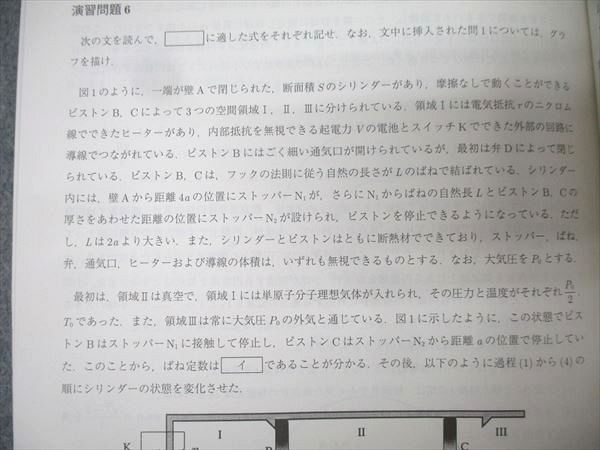 演習問題 6
次の文を読んで, に適した式をそれぞれ記せ. なお, 文中に挿入された問1については, グラ
フを描け.
図1のように, 一端が壁Aで閉じられた, 断面積Sのシリンダーがあり, 摩擦なしで動くことができる
ピストンB, Cによって3つの空間領域I, II, IIIに分けられている. 領域Iには電気抵抗rのニクロム
線でできたヒーターがあり, 内部抵抗を無視できる起電力Vの電池とスイッチKでできた外部の回路に
導線でつながれている. ピストンBにはごく細い通気口が開けられているが, 最初は弁Dによって閉じ
られている. ピストンB, Cは, フックの法則に従う自然の長さがLのばねで結ばれている. シリンダー
内には, 壁Aから距離4aの位置にストッパーN₁が, さらにN₁からばねの自然長LとピストンB, Cの
厚さをあわせた距離の位置にストッパーN₂が設けられ, ピストンを停止できるようになっている. ただ
し, Lは2aより大きい. また, シリンダーとピストンはともに断熱材でできており, ストッパー, ばね,
弁, 通気口, ヒーターおよび導線の体積は, いずれも無視できるものとする. なお, 大気圧をP₀とする.
最初は, 領域IIは真空で, 領域Iには単原子分子理想気体が入れられ, その圧力と温度がそれぞれP₀/2,
T₀であった. また, 領域IIIは常に大気圧P₀の外気と通じている. 図1に示したように, この状態でピス
トンBはストッパーN₁に接触して停止し, ピストンCはストッパーN₂から距離aの位置で停止してい
た. このことから, ばね定数は イ であることが分かる. その後, 以下のように過程(1)から(4)の
順にシリンダーの状態を変化させた.
I II III
K C